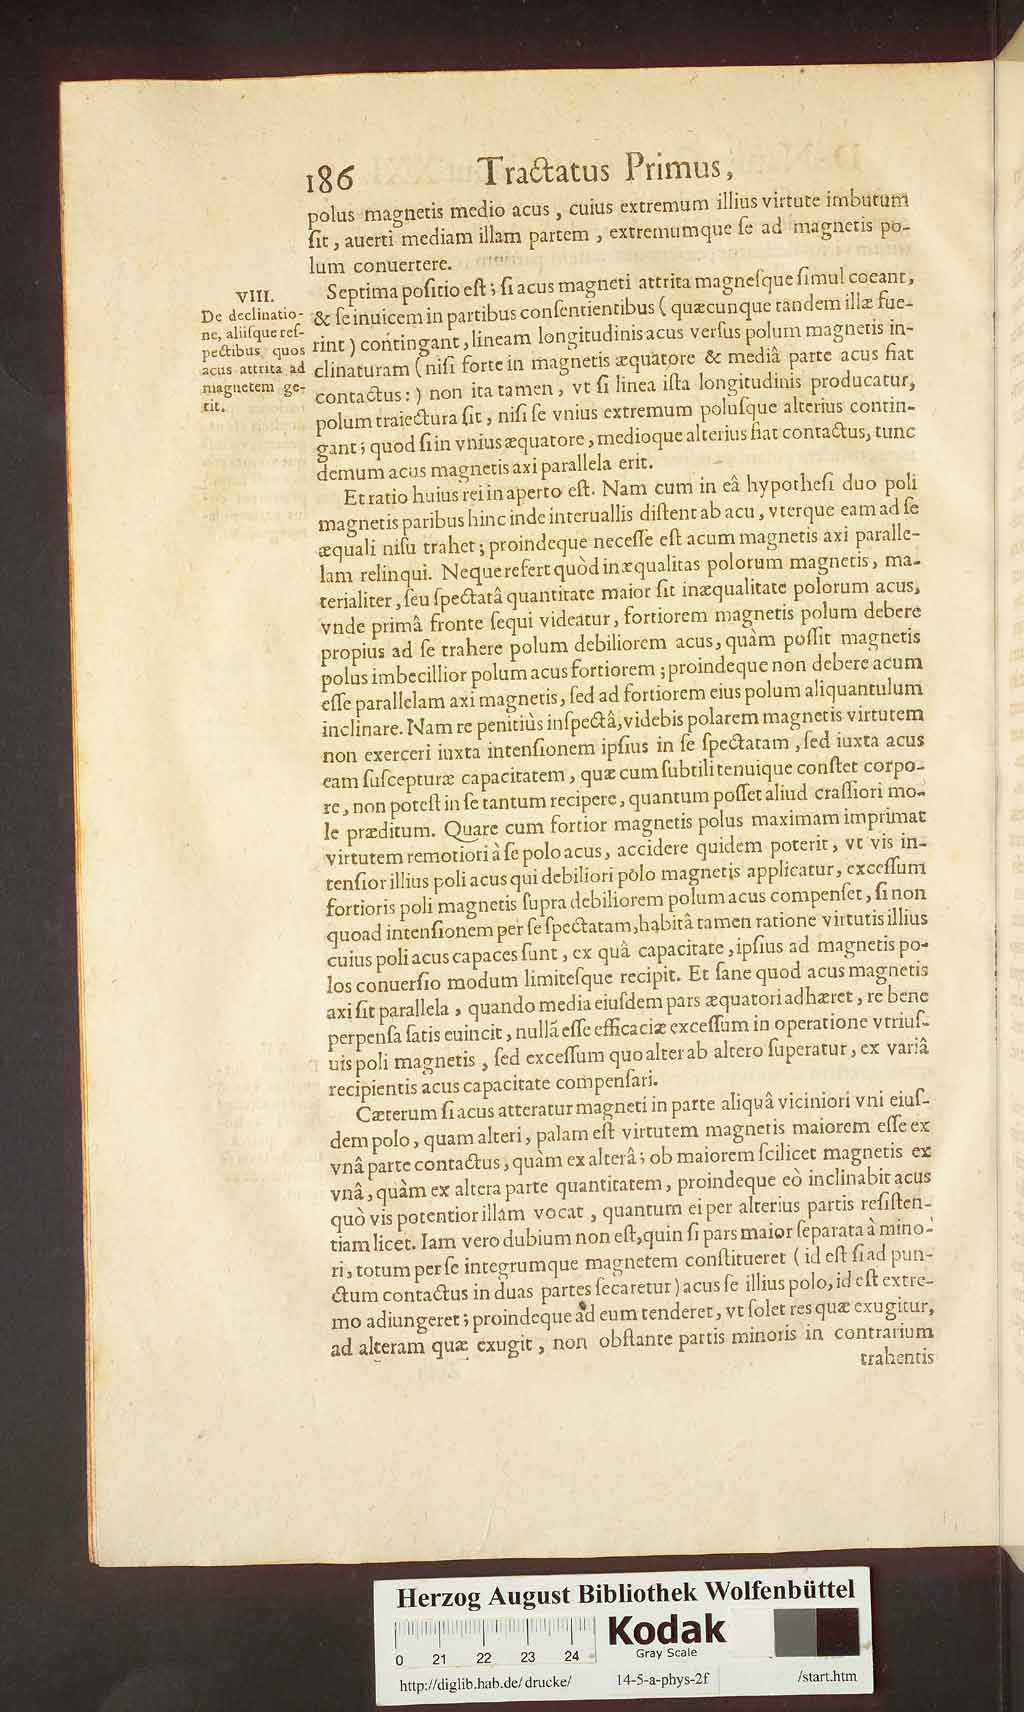 186 Tractatus Primus,
polus magnetis medio acus, cuius extremum illius virtute imbutum
ſit, auerti mediam illam partem, extremumque ſe ad magnetis po-
lum conuertere.
VIII.
De declinatio-
ne, aliiſque reſ-
pectibus, quos
acus attrita ad
magnetem ge-
rit.
Septima poſitio eſt; ſi acus magneti attrita magneſque ſimul coeant,
& ſe inuicem in partibus conſentientibus (quæcunque tandem illæ fue-
rint) contingant, lineam longitudinis acus verſus polum magnetis in-
clinaturam (niſi forte in magnetis æquatore & mediâ parte acus fiat
contactus:) non ita tamen, vt ſi linea iſta longitudinis producatur,
polum traiectura ſit, niſi ſe vnius extremum poluſque alterius contin-
gant; quod ſi in vnius æquatore, medioque alterius fiat contactus, tunc
demum acus magnetis axi parallela erit.
Et ratio huius rei in aperto eſt. Nam cum in eâ hypotheſi duo poli
magnetis paribus hinc inde interuallis diſtent ab acu, vterque eam ad ſe
æquali niſu trahet; proindeque neceſſe eſt acum magnetis axi paralle-
lam relinqui. Neque refert quòd inæqualitas polorum magnetis, ma-
terialiter, ſeu ſpectatâ quantitate maior ſit inæqualitate polorum acus,
vnde primâ fronte ſequi videatur, fortiorem magnetis polum debere
propius ad ſe trahere polum debiliorem acus, quàm poſſit magnetis
polus imbecillior polum acus fortiorem; proindeque non debere acum
eſſe parallelam axi magnetis, ſed ad fortiorem eius polum aliquantulum
inclinare. Nam re penitiùs inſpectâ, videbis polarem magnetis virtutem
non exerceri iuxta intenſionem ipſius in ſe ſpectatam, ſed iuxta acus
eam ſuſcepturæ capacitatem, quæ cum ſubtili tenuique conſtet corpo-
re, non poteſt in ſe tantum recipere, quantum poſſet aliud craſſiori mo-
le præditum. Quare cum fortior magnetis polus maximam imprimat
virtutem remotiori à ſe polo acus, accidere quidem poterit, vt vis in-
tenſior illius poli acus qui debiliori polo magnetis applicatur, exceſſum
fortioris poli magnetis ſupra debiliorem polum acus compenſet, ſi non
quoad intenſionem per ſe ſpectatam, habitâ tamen ratione virtutis illius
cuius poli acus capaces ſunt, ex quâ capacitate, ipſius ad magnetis po-
los conuerſio modum limiteſque recipit. Et ſane quod acus magnetis
axi ſit parallela, quando media eiuſdem pars æquatori adhæret, re bene
perpenſa ſatis euincit, nullā eſſe efficaciæ exceſſum in operatione vtriuſ-
uis poli magnetis, ſed exceſſum quo alter ab altero ſuperatur, ex variâ
recipientis acus capacitate compenſari.
Cæterum ſi acus atteratur magneti in parte aliquâ viciniori vni eiuſ-
dem polo, quam alteri, palam eſt virtutem magnetis maiorem eſſe ex
vnâ parte contactus, quàm ex alterâ; ob maiorem ſcilicet magnetis ex
vnâ, quàm ex altera parte quantitatem, proindeque eò inclinabit acus
quò vis potentior illam vocat, quantum ei per alterius partis reſiſten-
tiam licet. Iam vero dubium non eſt, quin ſi pars maior ſeparata à mino-
ri, totum per ſe integrumque magnetem conſtitueret (id eſt ſi ad pun-
ctum contactus in duas partes ſecaretur) acus ſe illius polo, id eſt extre-
mo adiungeret; proindeque ad eum tenderet, vt ſolet res quæ exugitur,
ad alteram quæ exugit, non obſtante partis minoris in contrarium
trahentis
Herzog August Bibliothek Wolfenbüttel
Kodak
Gray Scale
0 21 22 23 24
http://diglib.hab.de/drucke/ 14-5-a-phys-2f /start.htm